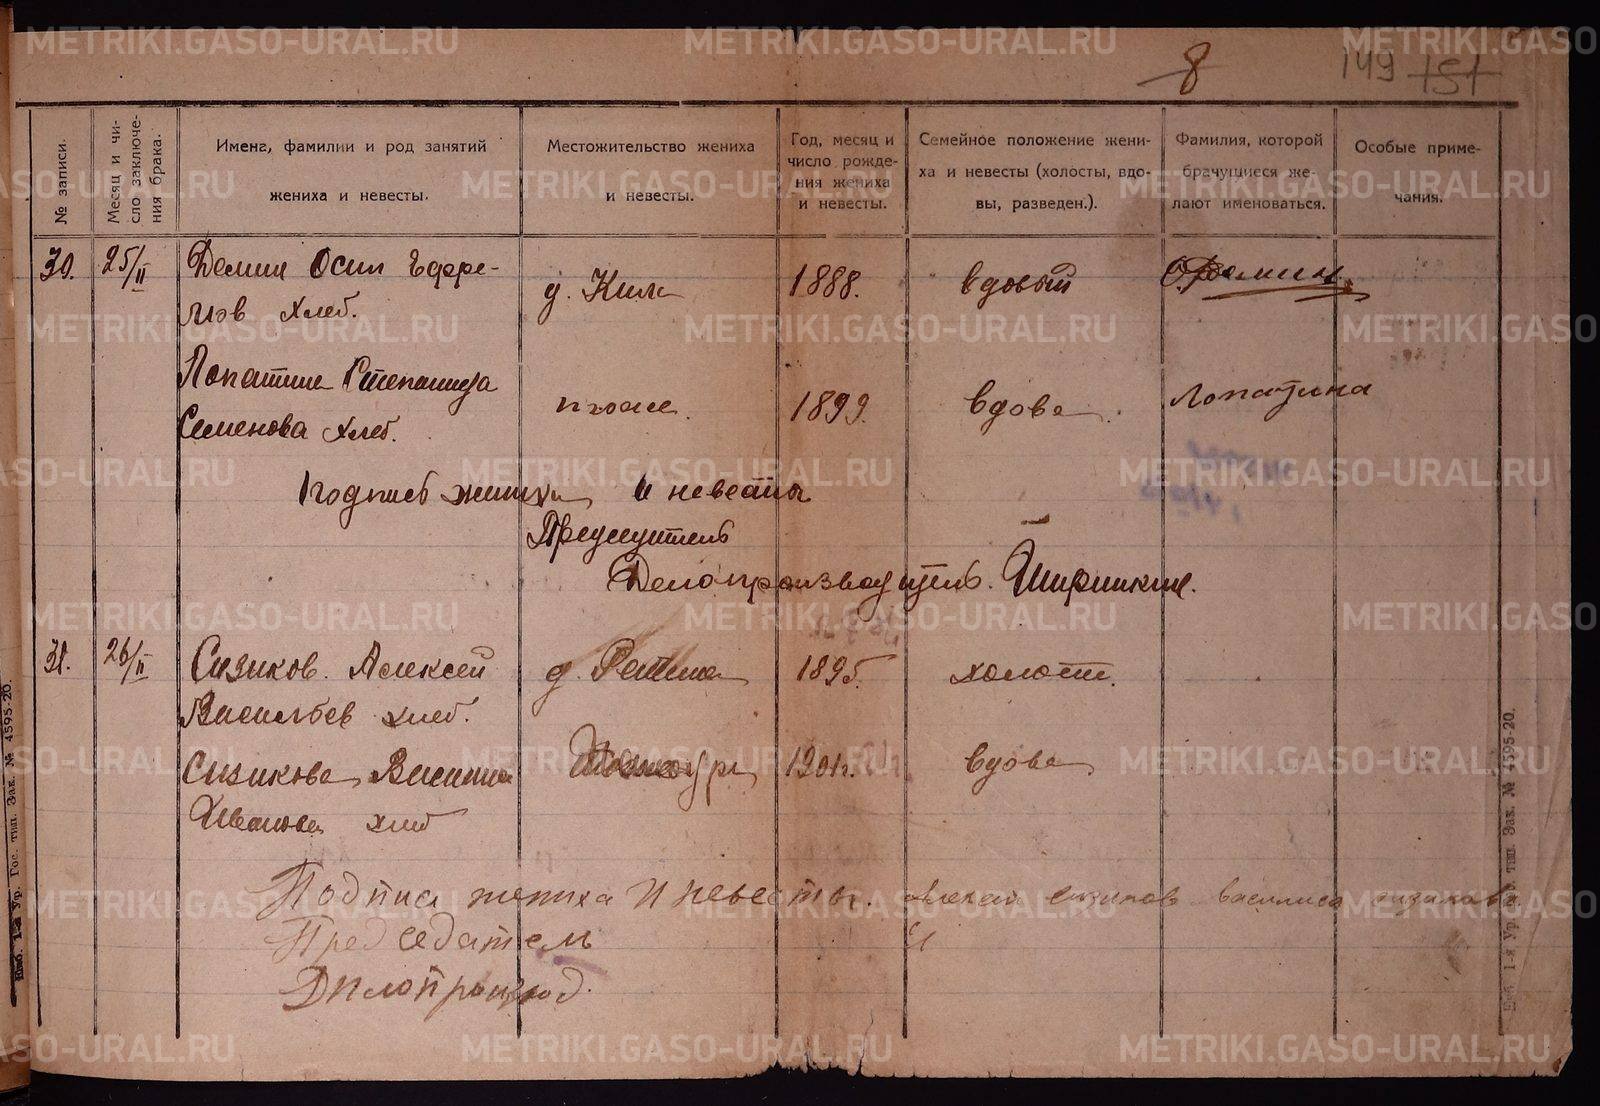 8
149 151
№ записи.
Месяц и число заключения брака.
Имена, фамилии и род занятий
жениха и невесты.
Местожительство жениха
и невесты.
Год, месяц и
число рожде-
ния жениха
и невесты.
Семейное положение жени-
ха и невесты (холосты, вдо-
вы, разведен.).
Фамилия, которой
брачущиеся же-
лают именоваться.
Особые приме-
чания.
30. 25/II Демин Осип Ефре-
мов хлеб.
д. Кила 1888. вдовый О. Демин.
Лопатина Степанида
Семенова хлеб.
1899. вдова. Лопатина
Подпись жениха и невесты
Председатель
Делопроизводитель.
31. 26/II Сизиков. Алексей
Васильев хлеб.
д. Ретина 1895. холост.
Сизикова Васили
Иванова хлеб
1901 г. вдова
Подписи жениха и невесты. алексей сизиков василиса сизикова
Председатель
Дилопроизвод.
Екб. 1-я Ур. Гос. тип. Зак. № 4595-20.
Екб. 1-я Ур. Гос. тип. Зак. № 4595-20.
METRIKI.GASO-URAL.RU